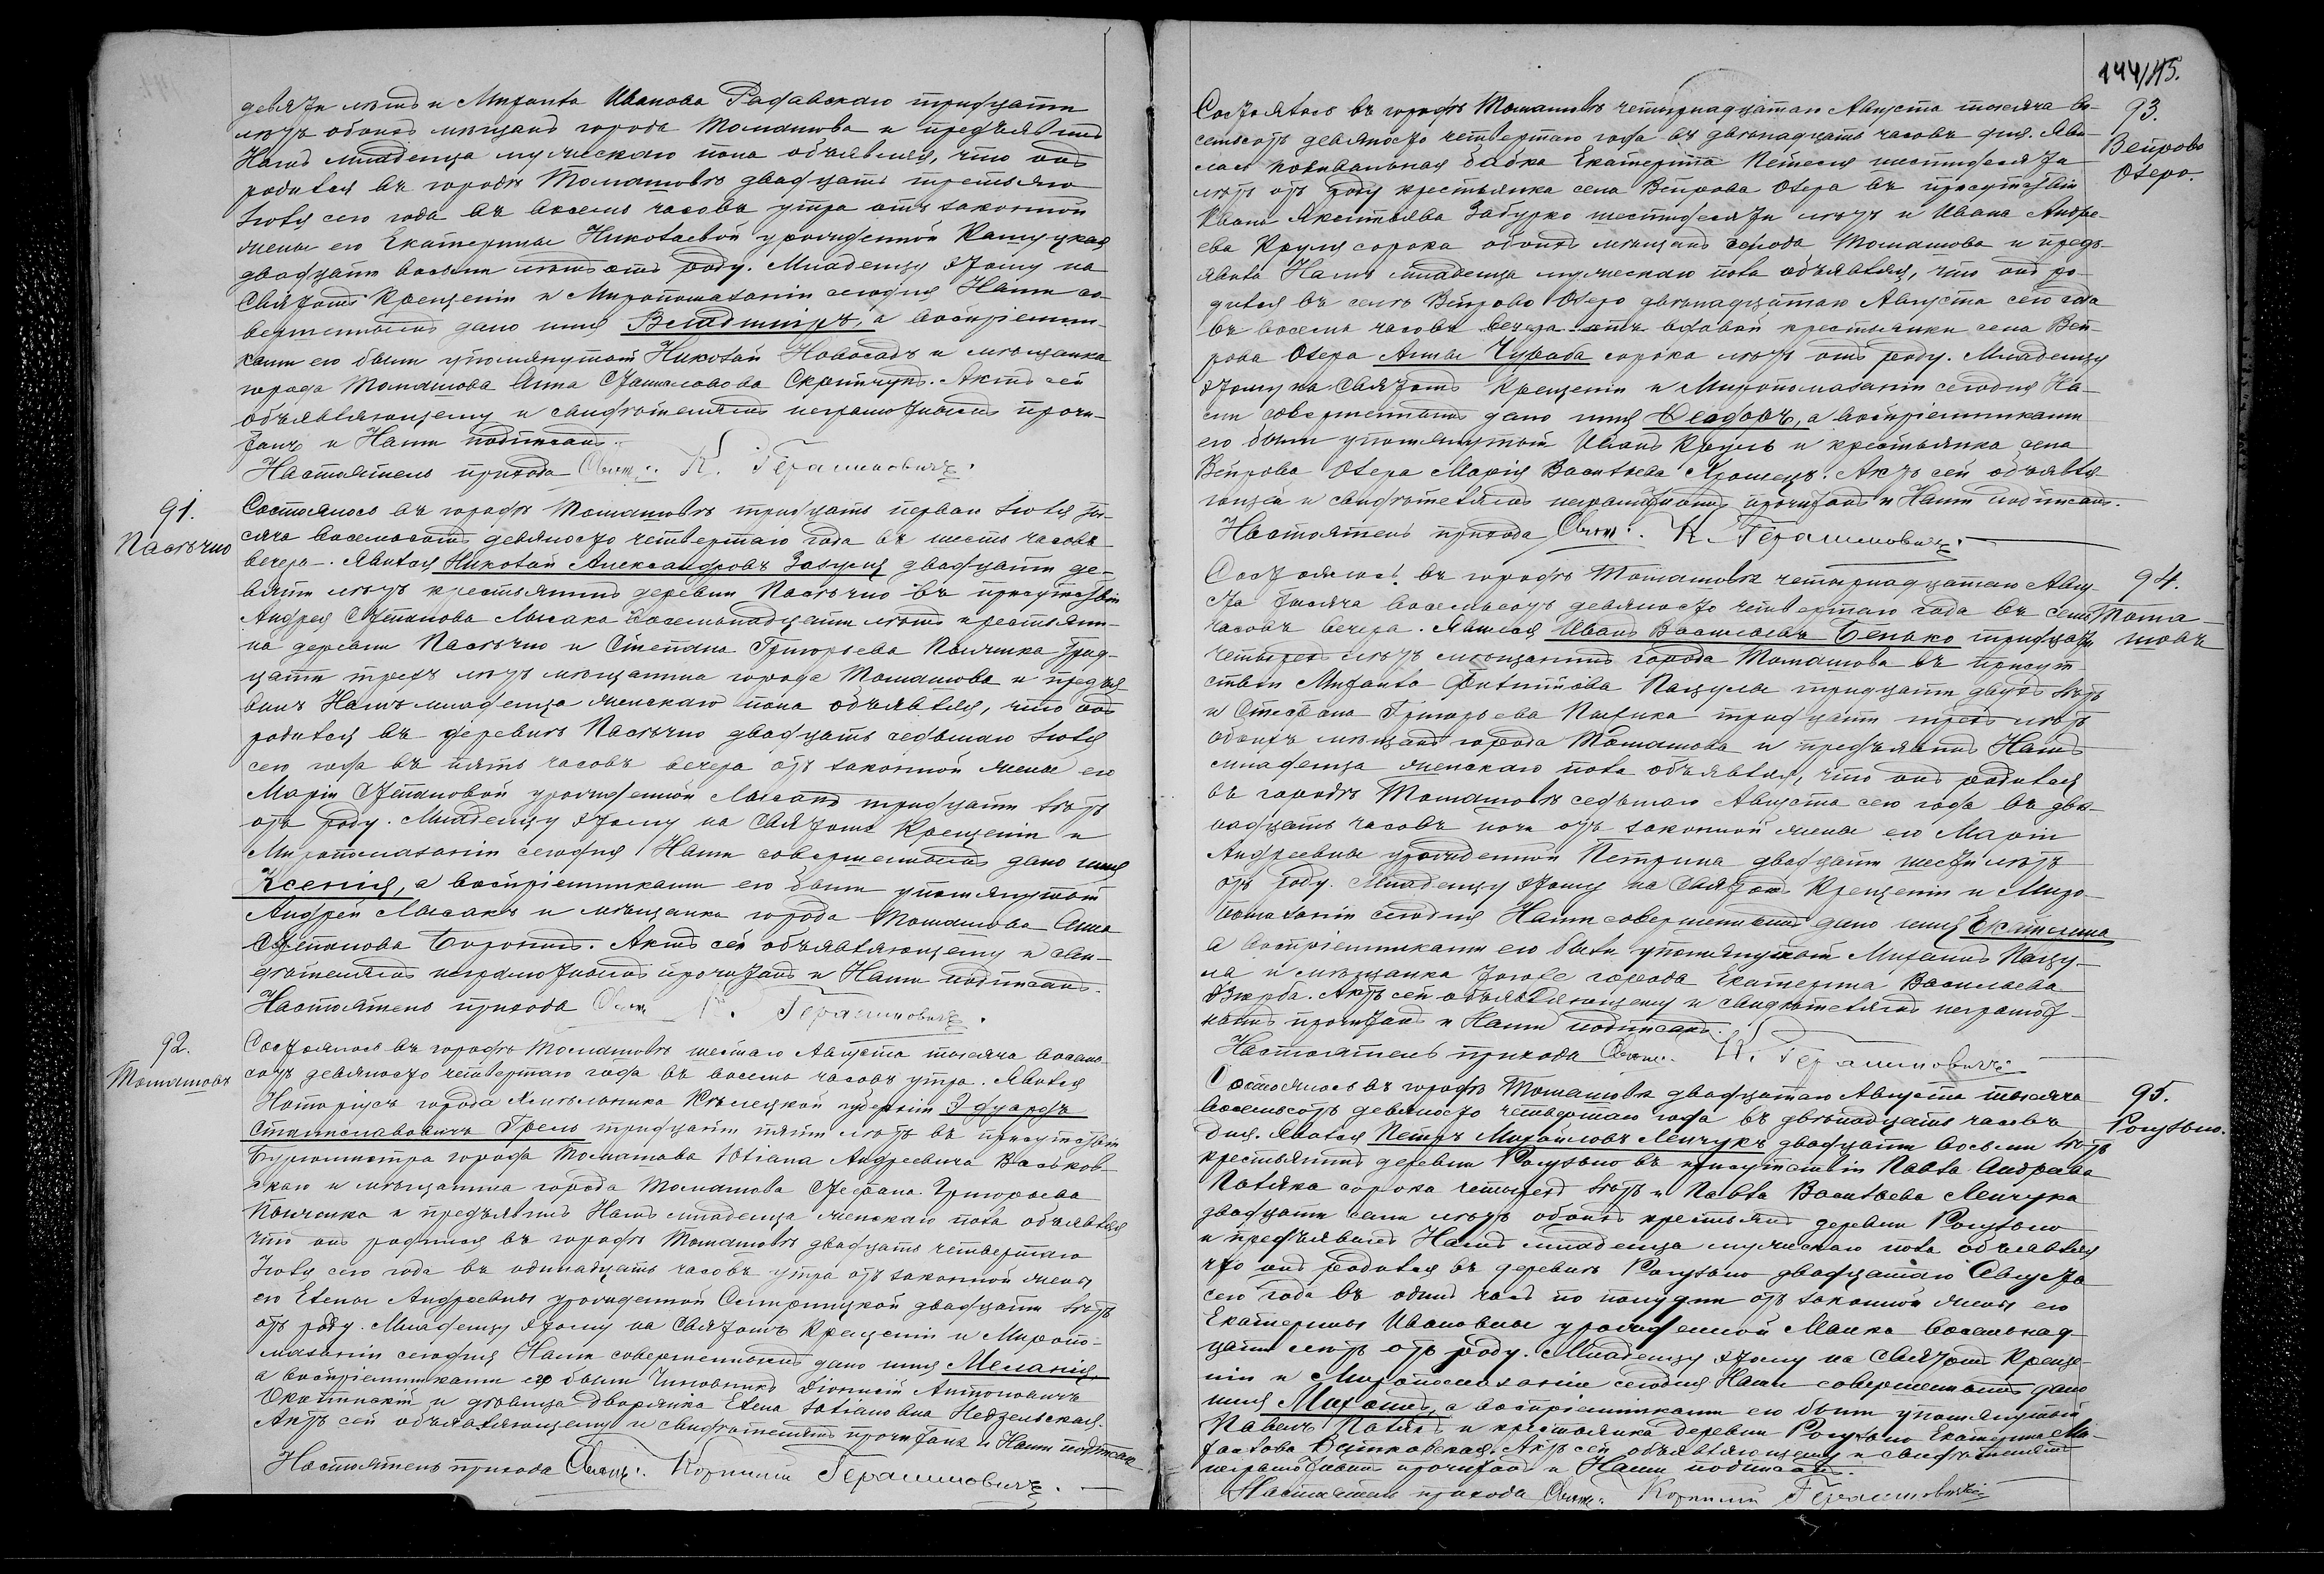 девяти летъ и Михаила Иванова Рафавскаго тридцати
летъ обоихъ мѣщанъ города Томашова и предъявилъ
Намъ младенца мужескаго пола объявляя, что онъ
родился въ городѣ Томашовѣ двадцать третьяго
Іюля сего года въ восемь часовъ утра отъ законной
жены его Екатерины Николаевой урожденной
двадцати восьми лѣтъ отъ роду. Младенцу этому на
Святомъ Крещеніи и Миропомазаніи сегодня Нами со-
вершенныхъ дано имя Владиміръ, а воспріемни-
ками его были упомянутый Николай Новосадъ и мѣщанка
города Томашова Анна Скрипчукъ. Актъ сей
объявляющему и свидѣтелямъ неграмотнымъ прочи-
танъ и Нами подписанъ.
Настоятель прихода Свящ: К. Герасимовичъ.
91.
Пасѣчно
Состоялось въ городѣ Томашовѣ тридцать перваго Іюля ты-
сяча восемьсотъ девяносто четвертаго года въ шесть часовъ
вечера. Явился Николай Александровъ Зазуля двадцати де-
вяти лѣтъ крестьянинъ деревни Пасѣчно въ присутствіи
Андрея Степанова Лысака восемнадцати лѣтъ крестьяни-
на деревни Пасѣчно и Стефана Григорьева Пынчика трид-
цати трехъ лѣтъ мѣщанина города Томашова и предъя-
вилъ Намъ младенца женскаго пола объявляя, что онъ
родился въ деревнѣ Пасѣчно двадцать седьмаго Іюля
сего года въ пять часовъ вечера отъ законной жены его
Маріи Степановой урожденной Лысакъ тридцати лѣтъ
отъ роду. Младенцу этому на Святомъ Крещеніи и
Миропомазаніи сегодня Нами совершенныхъ дано имя
Ксенія, а воспріемниками его были упомянутый
Андрей Лысакъ и мѣщанка города Томашова Анна
Степанова. Актъ сей объявляющему и сви-
дѣтелямъ неграмотнымъ прочитанъ и Нами подписанъ.
Настоятель прихода Свящ К. Герасимовичъ.
92.
Томашовъ
Состоялось въ городѣ Томашовѣ шестаго Августа тысяча восемь-
сотъ девяносто четвертаго года въ восемь часовъ утра. Явился
Нотаріусъ города Хмѣльника Кѣлецкой губерніи Эдуардъ
Станиславовичъ Грель тридцати пяти лѣтъ въ присутствіи
Бургомистра города Томашова Юліана Андреевича Васьков-
скаго и мѣщанина города Томашова Стефана Григорьева
Пынчика и предъявилъ Намъ младенца женскаго пола объявляя
что онъ родился въ городѣ Томашовѣ двадцать четвертаго
Іюля сего года въ одинадцать часовъ утра отъ законной жены
его Елены Андреевны урожденной двадцати лѣтъ
отъ роду. Младенцу этому на Святомъ Крещеніи и Миропо-
мазаніи сегодня Нами совершенныхъ дано имя Меланія,
а воспріемниками его были Чиновникъ Діонисій Антоновичъ
и дѣвица дворянка Елена Юліановна Недзельская.
Актъ сей объявляющему и свидѣтелямъ прочитанъ и Нами подписанъ
Настоятель прихода Свящ: Корнилій Герасимовичъ.
144/115.
93.
Вепрово
Озеро.
Состоялось въ городѣ Томашовѣ четырнадцатаго Августа тысяча во-
семьсотъ девяносто четвертаго года въ двѣнадцать часовъ дня. Яви-
лася повивальная бабка Екатерина шестидесяти
лѣтъ отъ роду крестьянка села Вепрова Озера въ присутствіи
Ивана Забурко шестидесяти лѣтъ и Ивана Андре-
ева Круля сорока обоихъ мѣщанъ города Томашова и предъ-
явила Намъ младенца мужескаго пола объявляя, что онъ ро-
дился въ селѣ Вепрово Озеро двѣнадцатаго Августа сего года
въ восемь часовъ вечера отъ вдовой крестьянки села Веп-
рова Озера Анны Чураба сорока лѣтъ отъ роду. Младенцу
этому на Святомъ Крещеніи и Миропомазаніи сегодня На-
ми совершенныхъ дано имя Ѳеодоръ, а воспріемниками
его были упомянутый Иванъ Круль и крестьянка села
Вепрова Озера Марія Васильева. Актъ сей объявля-
ющей и свидѣтелямъ неграмотнымъ прочитанъ и Нами подписанъ.
Настоятель прихода Свящ: К. Герасимовичъ.
94.
Тома-
шовъ
Состоялось въ городѣ Томашовѣ четырнадцатаго Авгу-
ста тысяча восемьсотъ девяносто четвертаго года въ семь
часовъ вечера. Явился Иванъ Васильевъ Бенько тридцати
четырехъ лѣтъ мѣщанинъ города Томашова въ присут-
ствіи Михаила Филиппова Пацулы тридцати двухъ лѣтъ
и Стефана Григорьева Пынчика тридцати трехъ лѣтъ
обоихъ мѣщанъ города Томашова и предъявилъ Намъ
младенца женскаго пола объявляя, что онъ родился
въ городѣ Томашовѣ седьмаго Августа сего года въ двѣ-
надцать часовъ ночи отъ законной жены его Маріи
Андреевны урожденной Петрина двадцати шести лѣтъ
отъ роду. Младенцу этому на Святомъ Крещеніи и Миро-
помазаніи сегодня Нами совершенныхъ дано имя Екатерина
а воспріемниками его были упомянутый Михаилъ Пацу-
ла и мѣщанка того города Екатерина Васильева
Дзюрба. Актъ сей объявляющему и свидѣтелямъ неграмот-
нымъ прочитанъ и Нами подписанъ.
Настоятель прихода Свящ: К. Герасимовичъ
95.
Рогузьно.
Состоялось въ городѣ Томашовѣ двадцатаго Августа тысяча
восемьсотъ девяносто четвертаго года въ двѣнадцать часовъ
дня. Явился Петръ Михайловъ Ленчукъ двадцати восьми лѣтъ
крестьянинъ деревни Рогузьно въ присутствіи Павла Андреева
Поляка сорока четырехъ лѣтъ и Павла Васильева Ленчука
двадцати семи лѣтъ обоихъ крестьянъ деревни Рогузьно
и предъявилъ Намъ младенца мужескаго пола объявляя
что онъ родился въ деревнѣ Рогузьно двадцатаго Августа
сего года въ одинъ часъ по полудни отъ законной жены его
Екатерины Ивановны урожденной Манко восемьнад-
цати лѣтъ отъ роду. Младенцу этому на Святомъ Креще-
ніи и Миропомазаніи сегодня Нами совершенныхъ дано
имя Михаилъ, а воспріемниками его были упомянутый
Павелъ Полякъ и крестьянка деревни Рогузьно Екатерина
Витковская. Актъ сей объявляющему и свидѣтелямъ
неграмотнымъ прочитанъ и Нами подписанъ.
Настоятель прихода Свящ: Корнилій Герасимовичъ